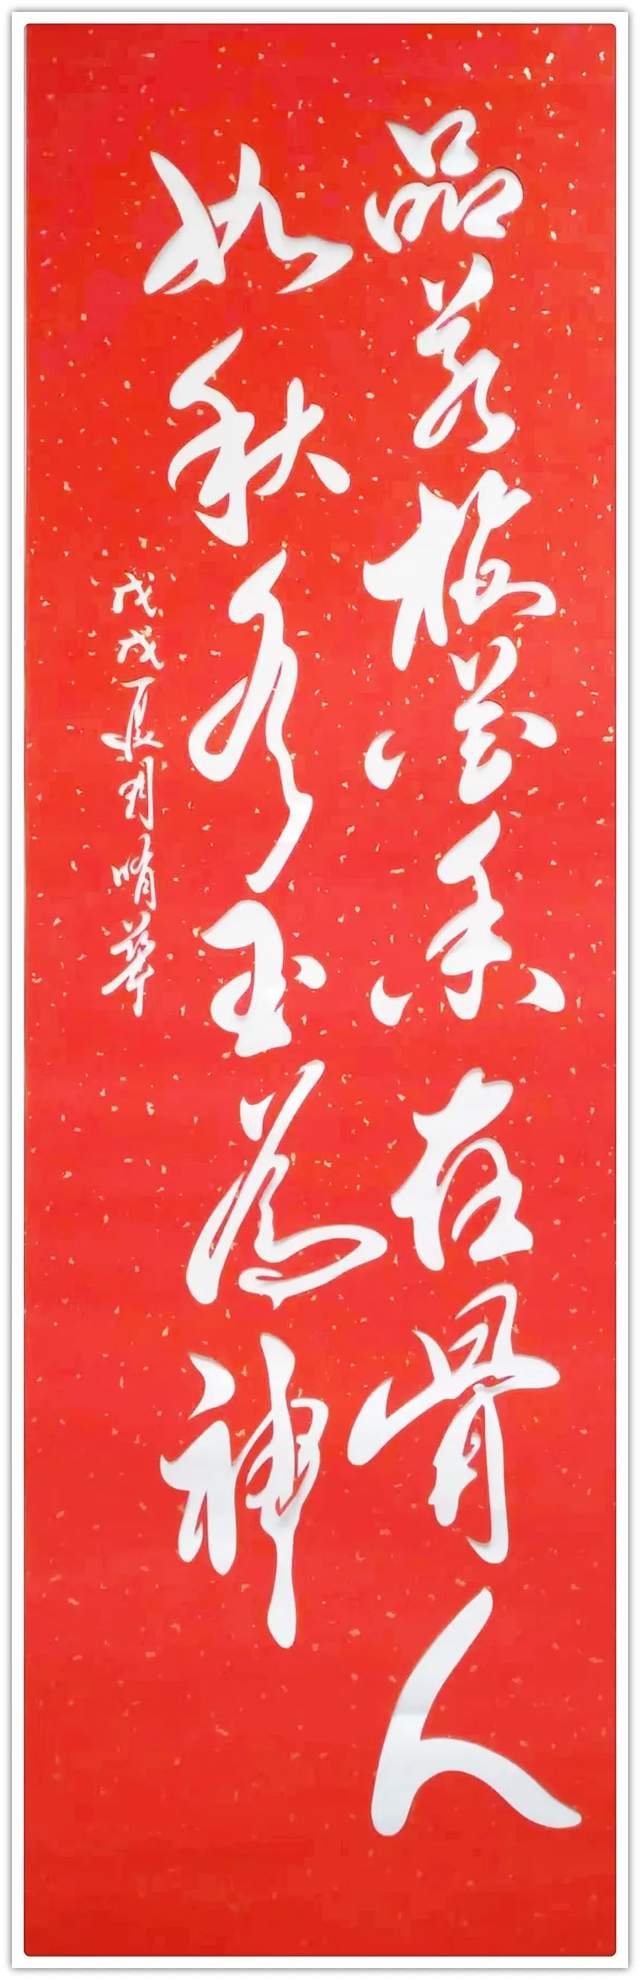 品若梅花香在骨人
如秋水玉為神
戊戌夏月華